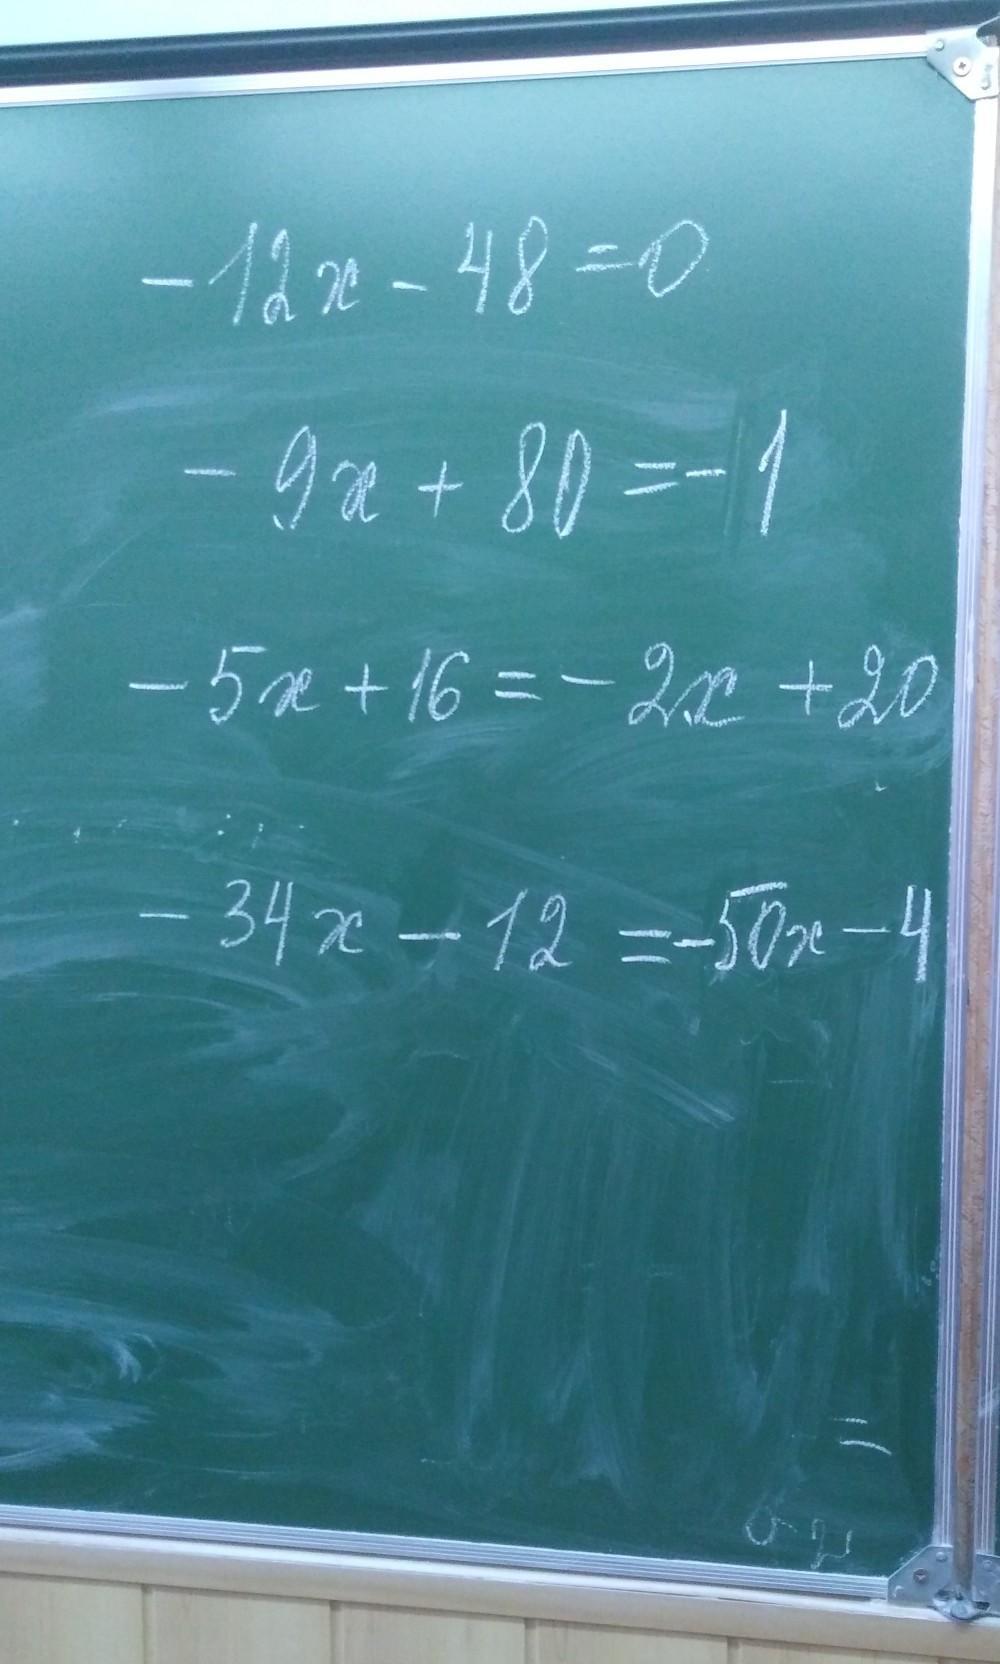 -12x - 48 = 0
- 9x + 80 = -1
- 5x + 16 = - 2x + 20
- 34x - 12 = -50x - 4
=